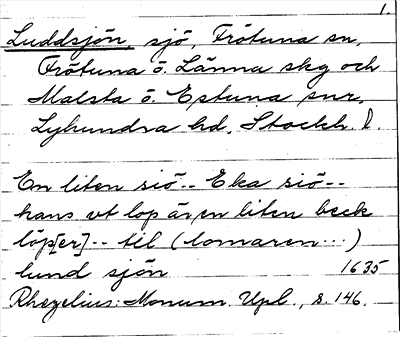 1.
Luddsjön, sjö, Frötuna sn,
Frötuna o. Länna skg och
Malsta o. Estuna snr,
Lyhundra hd, Stockh. l.
En liten siö -- Eka siö --
hans vt lop är en liten beck
löp[er] -- til (lomaren ...)
lund sjön 1635
Rhezelius: Monum. Upl., s. 146.